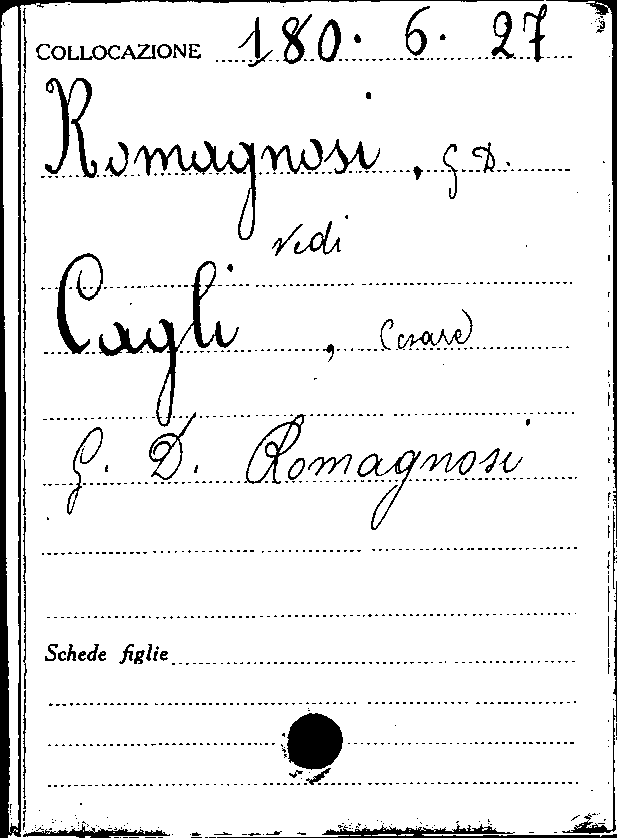 COLLOCAZIONE 180. 6. 27
Romagnosi, G. D.
vedi
Cagli, Cesare
G. D. Romagnosi
Schede figlie